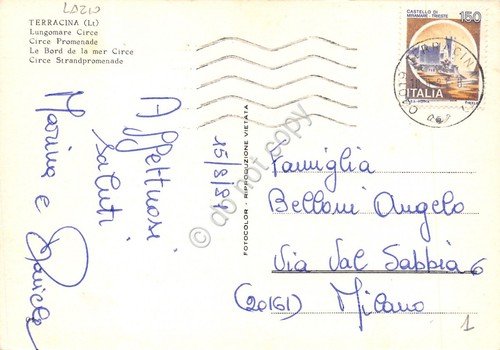 LAZIO
TERRACINA (Lt)
Lungomare Circe
Circe Promenade
Le Bord de la mer Circe
Circe Strandpromenade
Affettuosi
saluti
Marina e Daniela
15/8/81
FOTOCOLOR - RIPRODUZIONE VIETATA
CASTELLO DI
MIRAMARE - TRIESTE
150
ITALIA
Famiglia
Belloni Angelo
Via Val Sabbia 6
(20161) Milano
1
do not copy